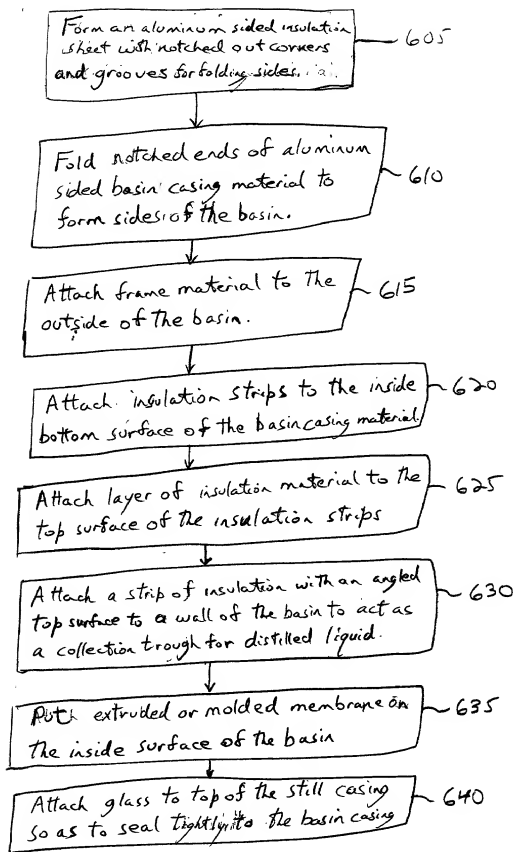 Form an aluminum sided insulation
sheet with notched out corners 605
and grooves for folding sides.
Fold notched ends of aluminum
sided basin casing material to 610
form sides of the basin.
Attach frame material to the 615
outside of the basin.
Attach insulation strips to the inside 620
bottom surface of the basin casing material.
Attach layer of insulation material to the 625
top surface of the insulation strips
Attach a strip of insulation with an angled
top surface to a wall of the basin to act as 630
a collection trough for distilled liquid.
Put extruded or molded membrane on 635
the inside surface of the basin
Attach glass to top of the still casing 640
so as to seal tightly to the basin casing